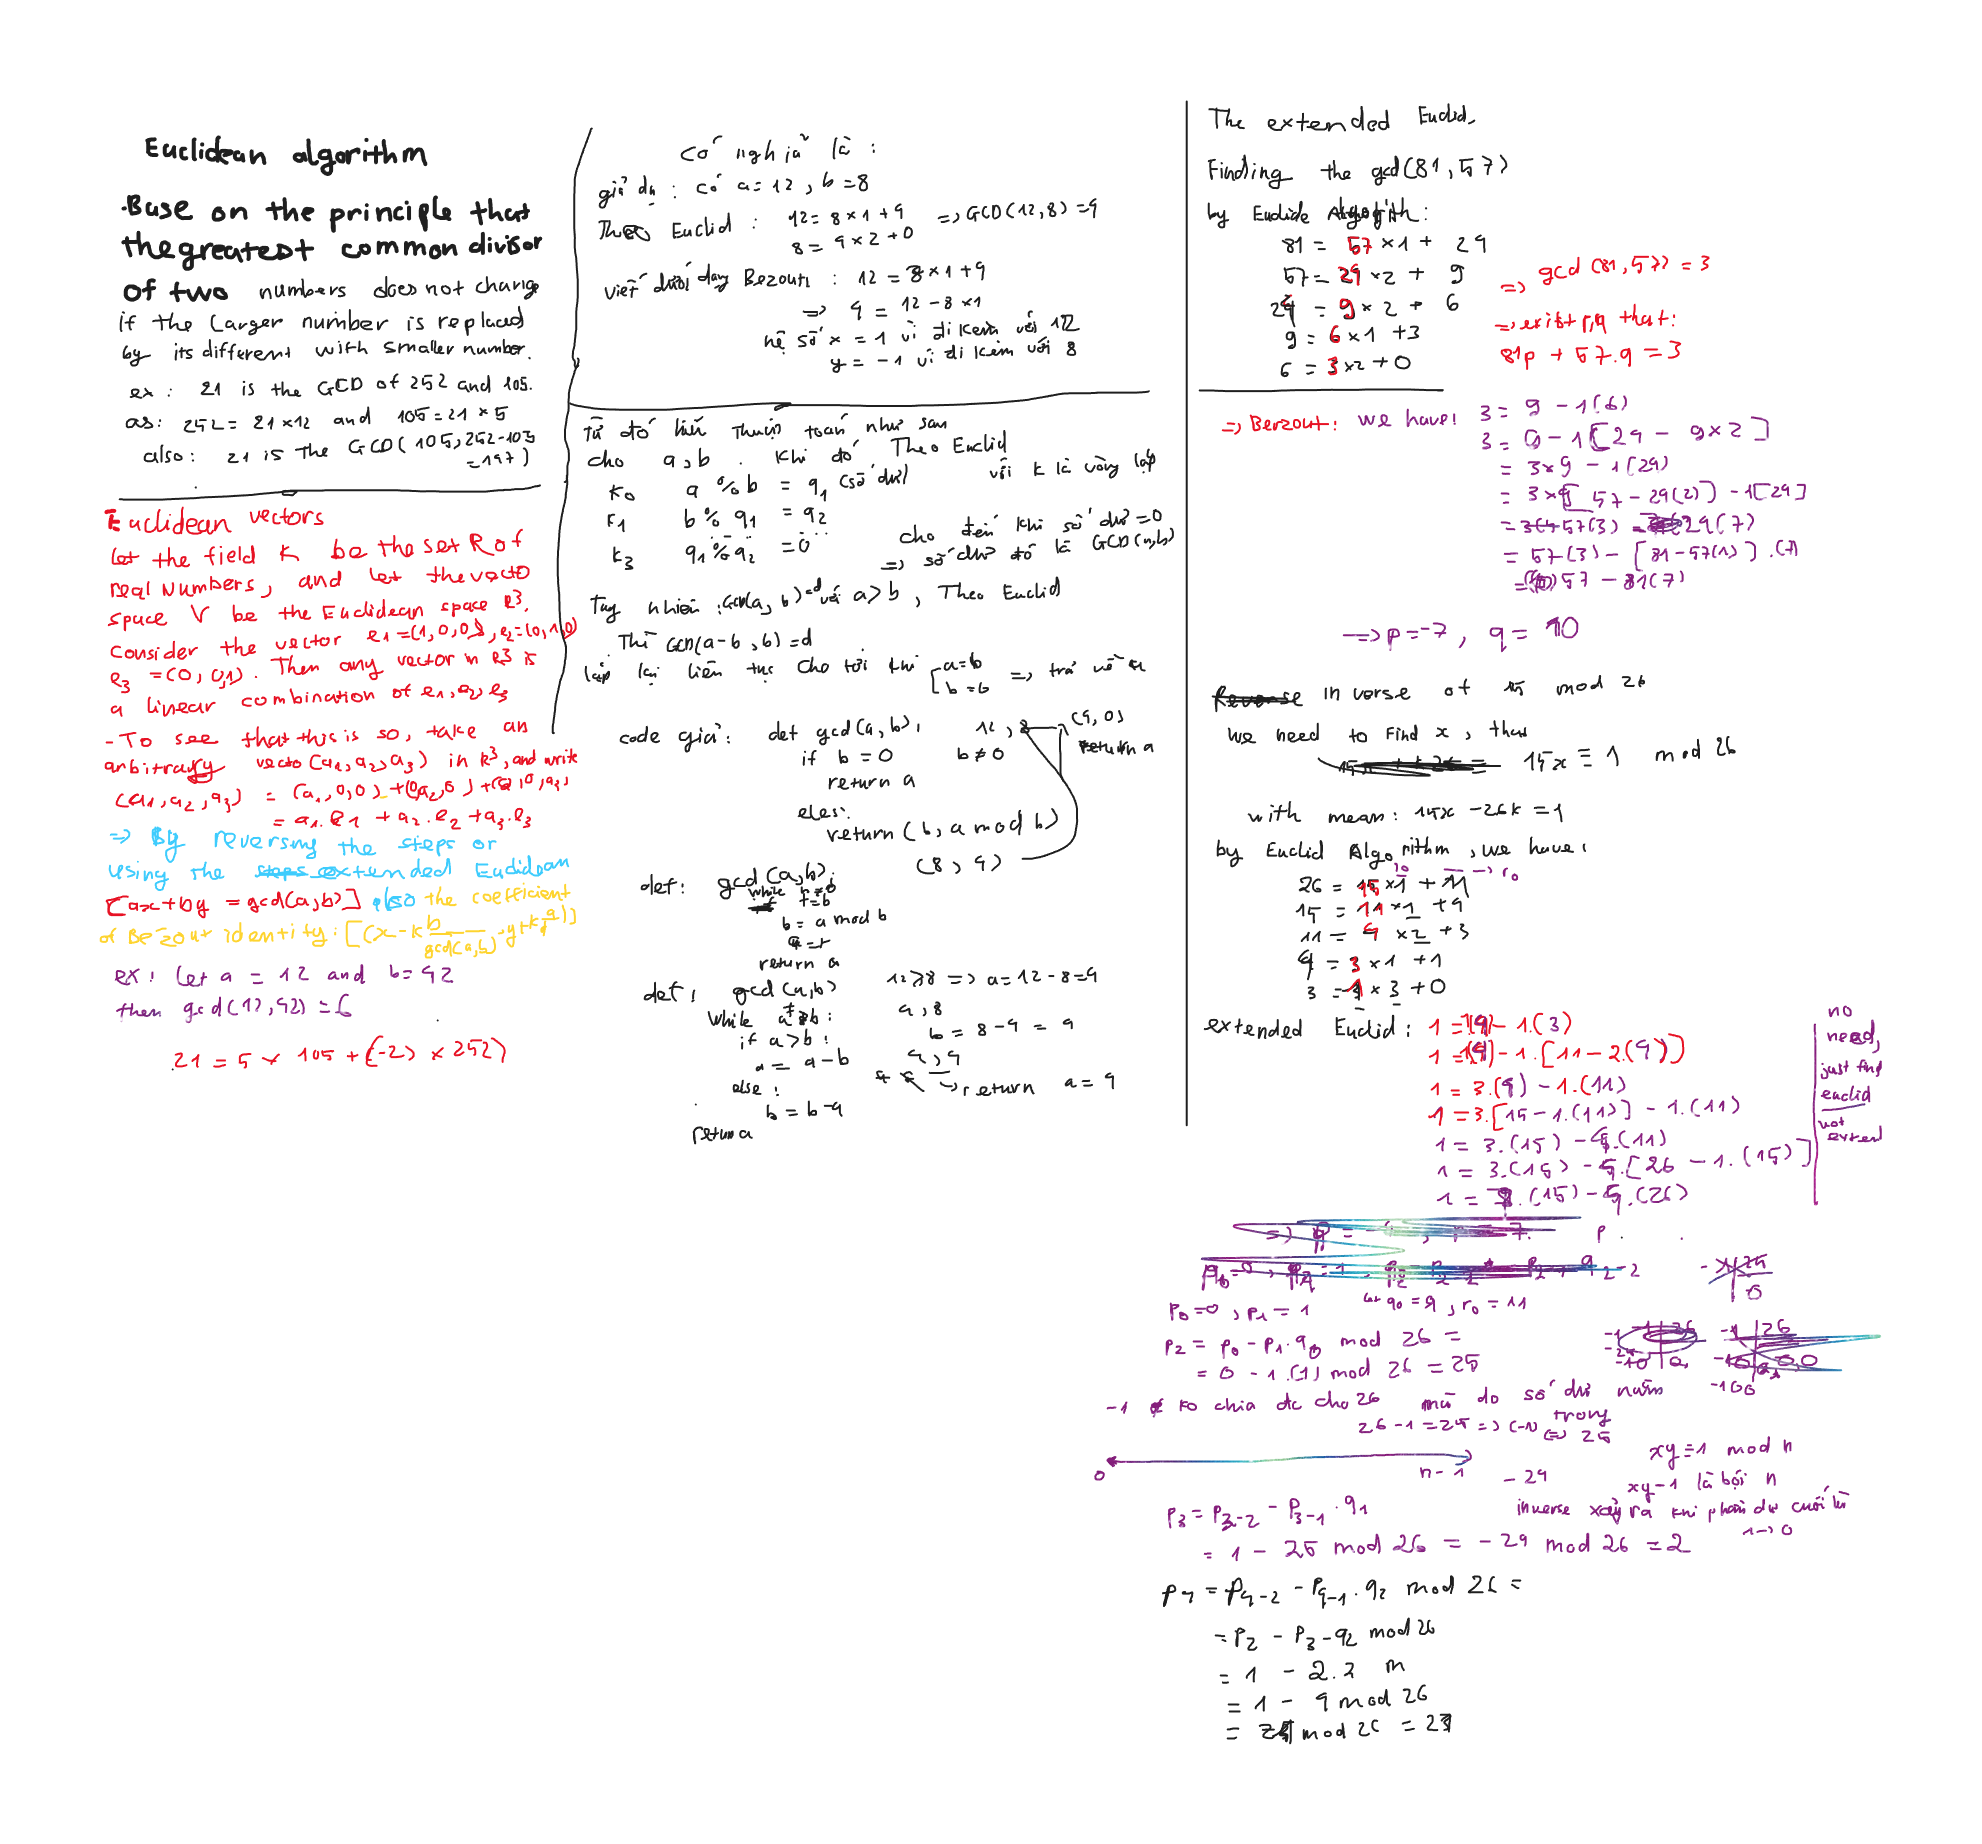 Euclidean algorithm
.Base on the principle that
the greatest common divisor
of two numbers does not change
if the larger number is replaced
by its different with smaller number.
ex: 21 is the GCD of 252 and 105.
as: 252 = 21 × 12 and 105 = 21 × 5
also: 21 is the GCD(105, 252-105
= 147)
Euclidean vectors
let the field K be the set R of
real numbers, and let the vecto
space V be the Euclidean space R³.
Consider the vector e1 = (1,0,0), e2 = (0,1,0)
e3 = (0,0,1). Then any vector in R³ is
a linear combination of e1, e2, e3
- To see that this is so, take an
arbitrary vecto (a1, a2, a3) in R³, and write
(a1, a2, a3) = (a1,0,0) + (0,a2,0) + (0,0,a3)
= a1.e1 + a2.e2 + a3.e3
=> By reversing the steps or
using the extended Euclidean
[ax + by = gcd(a,b)] also the coefficient
of Bezout identity:
ex: let a = 12 and b = 42
then gcd(12,42) = 6
21 = 5 × 105 + (-2) × 252)
Có nghĩa là:
giả dụ: có a = 12, b = 8
Theo Euclid: 12 = 8 × 1 + 4 => GCD(12,8) = 4
8 = 4 × 2 + 0
viết dưới dạng Bezout: 12 = 8 × 1 + 4
=> 4 = 12 - 8 × 1
hệ số x = 1 vì đi kèm với 12
y = -1 vì đi kèm với 8
Từ đó hiểu thuật toán như sau
cho a, b. Khi đó Theo Euclid
K0 a % b = q1 (số dư) với k là vòng lặp
K1 b % q1 = q2
K3 q1 % q2 = 0 cho đến khi số dư = 0
=> số dư đó là GCD(a,b)
Tuy nhiên: GCD(a,b) = d với a > b, Theo Euclid
Thì GCD(a-b, b) = d
lặp lại liên tục cho tới khi [a=b
b=b => trả về a
code giả: def gcd(a,b): 12, 8 (4, 0)
if b = 0 b ≠ 0 return a
return a
eles:
return (b, a mod b)
(8, 4)
def: gcd(a,b):
while b ≠ 0
t = b
b = a mod b
a = t
return a
def: gcd(a,b) 12 > 8 => a = 12 - 8 = 4
while a ≠ b: 4, 8
if a > b: b = 8 - 4 = 4
a = a - b 4, 4
else: return a = 4
b = b - a
return a
The extended Euclid.
Finding the gcd(81, 57)
by Euclide Algogith:
81 = 57 × 1 + 24
57 = 24 × 2 + 9
24 = 9 × 2 + 6
9 = 6 × 1 + 3
6 = 3 × 2 + 0
=> gcd(81, 57) = 3
=> exist p,q that:
81p + 57.q = 3
=> Berzout: we have: 3 = 9 - 1(6)
3 = 9 - 1[24 - 9×2]
= 3×9 - 1(24)
= 3×[57 - 24(2)] - 1[24]
= 57(3) - 24(7)
= 57(3) - [81 - 57(1)].(7)
= (10)57 - 81(7)
=> p = -7, q = 10
inverse of 15 mod 26
we need to find x, that
15x ≡ 1 mod 26
with mean: 15x - 26k = 1
by Euclid Algorithm, we have:
26 = 15 × 1 + 11 -> r0
15 = 11 × 1 + 4
11 = 4 × 2 + 3
4 = 3 × 1 + 1
3 = 1 × 3 + 0
extended Euclid: 1 = (4) - 1.(3)
1 = (4) - 1.[11 - 2.(4)]
1 = 3.(4) - 1.(11)
1 = 3.[15 - 1.(11)] - 1.(11)
1 = 3.(15) - 4.(11)
1 = 3.(15) - 4.[26 - 1.(15)]
1 = 7.(15) - 4.(26)
no
need,
just find
euclid
not
extend
p0 = 0, p1 = 1
p2 = p0 - p1.q0 mod 26 =
= 0 - 1.(1) mod 26 = 25
-1 ko chia đc cho 26 mà do số dư nằm
trong
26 - 1 = 25 => (-1) <=> 25
0 n-1 - 24
xy ≡ 1 mod n
xy - 1 là bội n
inverse xảy ra khi phần dư cuối là
1 -> 0
p3 = p3-2 - p3-1.q1
= 1 - 25 mod 26 = -24 mod 26 = 2
p4 = p4-2 - p4-1.q2 mod 26 =
= p2 - p3-q2 mod 26
= 1 - 2.2 m
= 1 - 4 mod 26